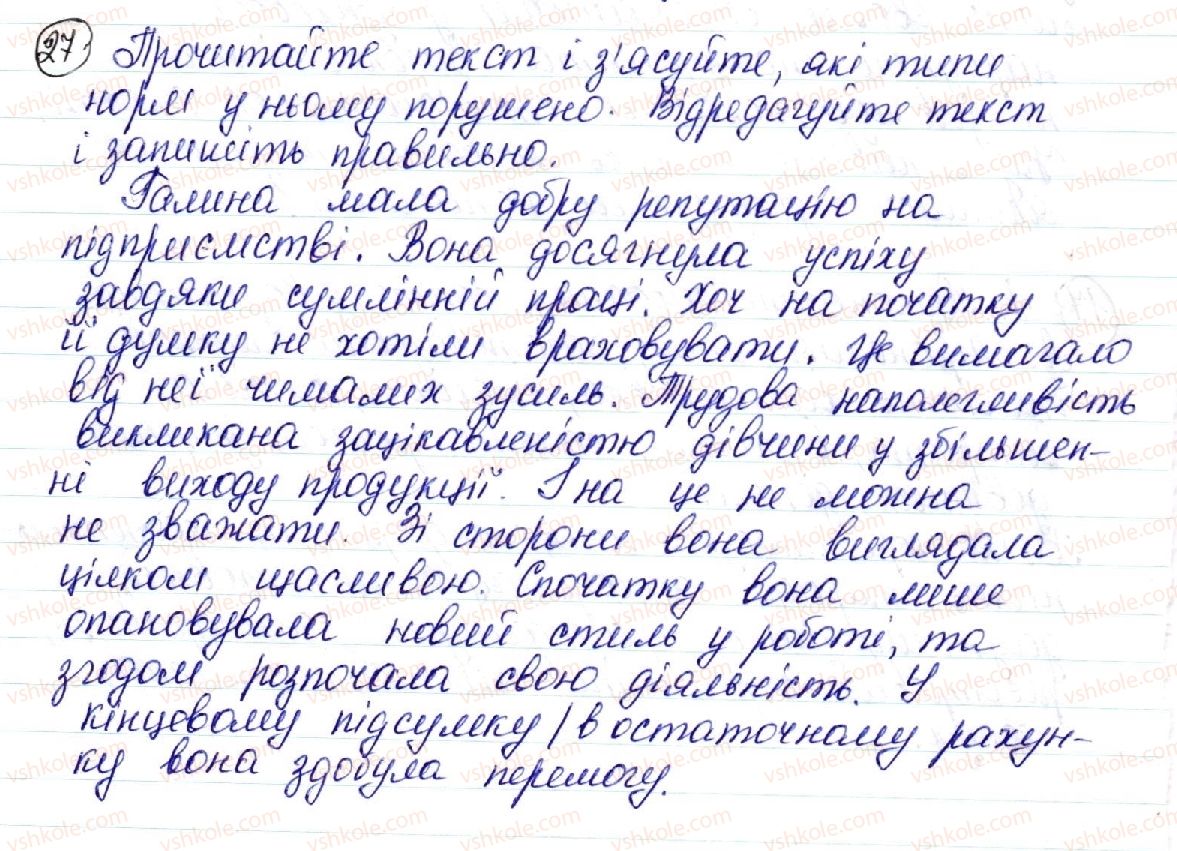 27. Прочитайте текст і з'ясуйте, які типи
норм у ньому порушено. Відредагуйте текст
і запишіть правильно.
Галина мала добру репутацію на
підприємстві. Вона досягнула успіху
завдяки сумлінній праці. Хоч на початку
її думку не хотіли враховувати. Це вимагало
від неї чималих зусиль. Трудова наполегливість
викликана зацікавленістю дівчини у збільшен-
ні виходу продукції. І на це не можна
не зважати. Зі сторони вона виглядала
цілком щасливою. Спочатку вона лише
опановувала новий стиль у роботі, та
згодом розпочала свою діяльність. У
кінцевому підсумку / в остаточному рахун-
ку вона здобула перемогу.